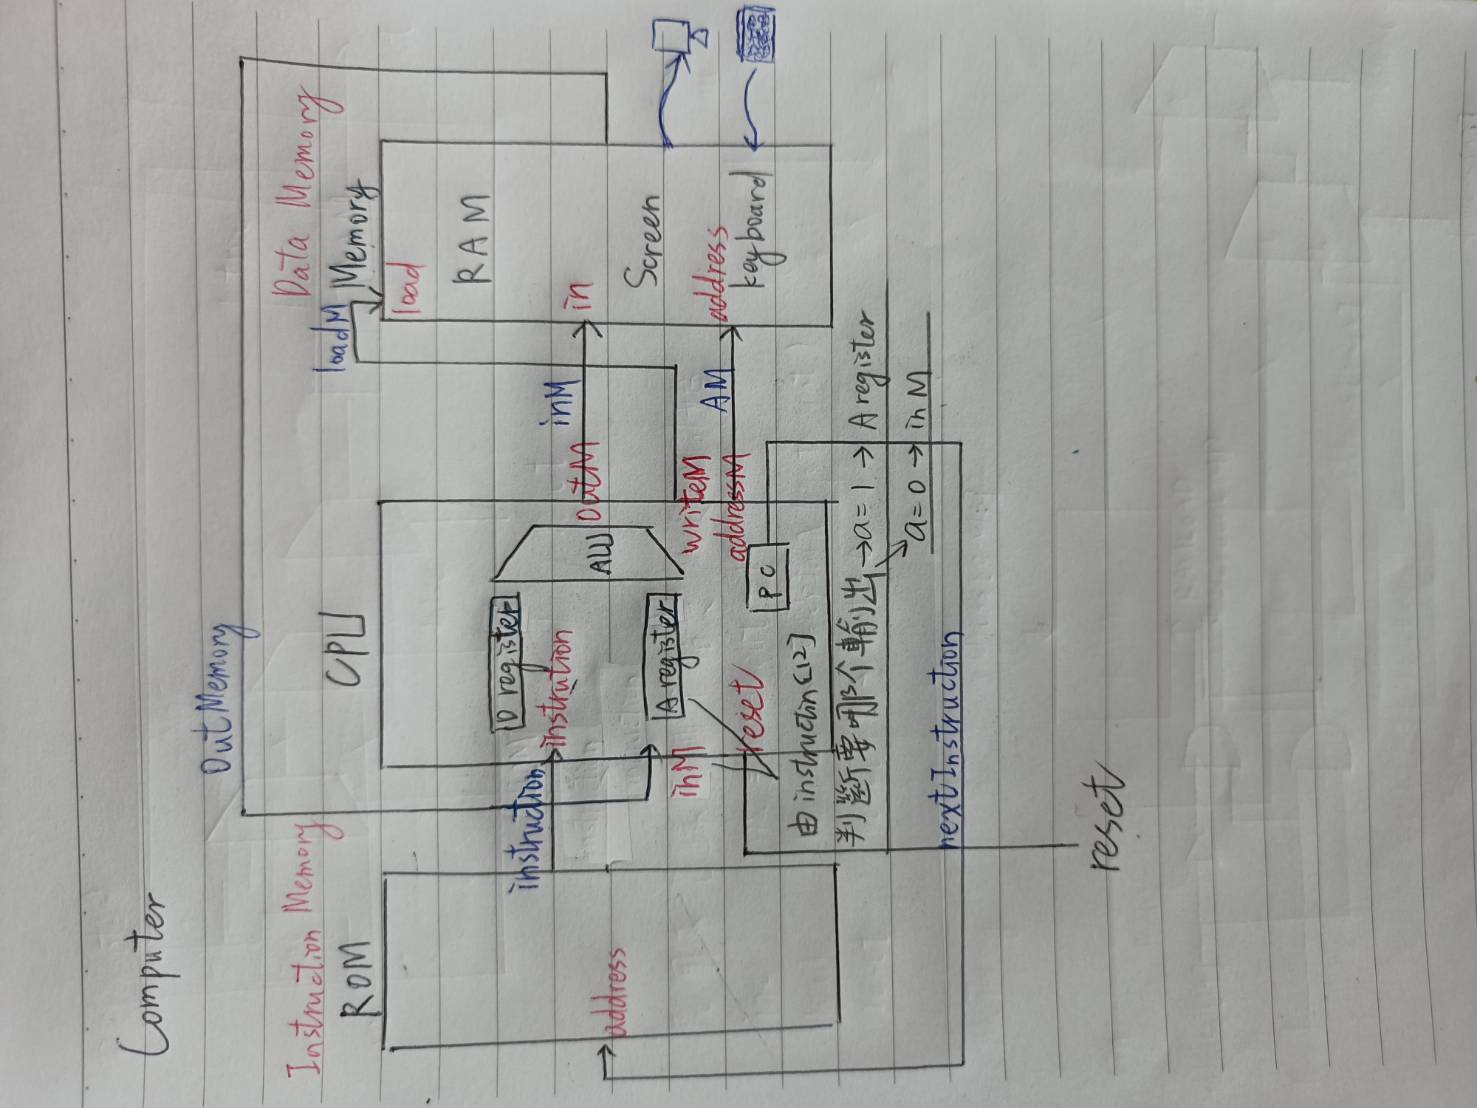 Computer
Instruction Memory
ROM
address
instruction
OutMemory
CPU
D register
instrution
A register
inM
reset
ALU
outM
writeM
addressM
PC
由instructin[12]
判斷要哪个輸出→a=1→A register
a=0→inM
nextInstruction
reset
loadM
inM
AM
Data Memory
Memory
load
RAM
in
Screen
address
keyboard